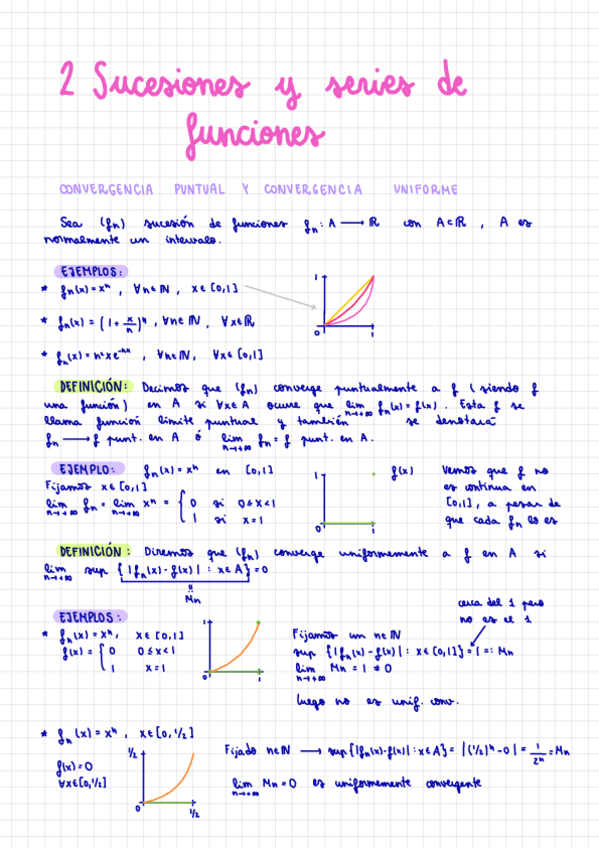 2 Sucesiones y series de
funciones
CONVERGENCIA PUNTUAL Y CONVERGENCIA UNIFORME
Sea (fn) sucesión de funciones fn : A ⟶ ℝ con A⊂ℝ , A es
normalmente un intervalo.
EJEMPLOS:
* fn(x) = xⁿ , ∀n∈ℕ , x∈[0,1]
* fn(x) = (1 + x/n)ⁿ , ∀n∈ℕ , ∀x∈ℝ
* fn(x) = n²xe^-nx , ∀n∈ℕ, ∀x∈[0,1]
1
0
1
DEFINICIÓN: Decimos que (fn) converge puntualmente a f (siendo f
una función) en A si ∀x∈A ocurre que lim n→+∞ fn(x) = f(x). Esta f se
llama función límite puntual y también se denotará
fn ⟶ f punt. en A ó lim n→+∞ fn = f punt. en A.
EJEMPLO: fn(x) = xⁿ en [0,1]
Fijamos x∈[0,1]
lim n→+∞ fn = lim n→+∞ xⁿ = { 0 si 0≤x<1
1 si x=1
1
0
1
f(x)
Vemos que f no
es continua en
[0,1], a pesar de
que cada fn lo es
DEFINICIÓN: Diremos que (fn) converge uniformemente a f en A si
lim n→+∞ sup { |fn(x) - f(x)| : x∈A} = 0
Mn
EJEMPLOS:
* fn(x) = xⁿ, x∈[0,1]
f(x) = { 0 0≤x<1
1 x=1
1
0
1
cerca del 1 pero
no es el 1
Fijamos un n∈ℕ
sup {|fn(x) - f(x)| : x∈[0,1]} = 1 =: Mn
lim n→+∞ Mn = 1 ≠ 0
luego no es unif. conv.
* fn(x) = xⁿ , x∈[0,1/2]
f(x) = 0
∀x∈[0,1/2]
1/2
0
1/2
Fijado n∈ℕ ⟶ sup{|fn(x)-f(x)| : x∈A} = |(1/2)ⁿ - 0| = 1/2ⁿ = Mn
lim n→+∞ Mn = 0 es uniformemente convergente